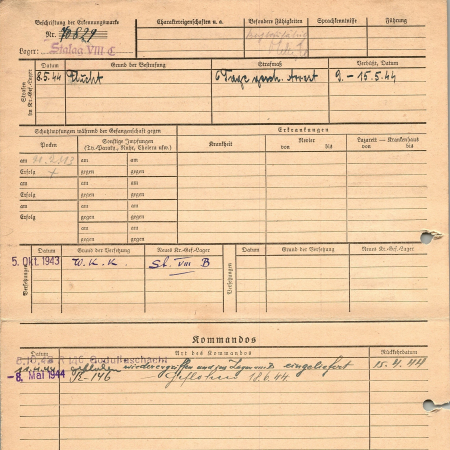 Beschriftung der Erkennungsmarke
Nr. 70829
Lager: Stalag VIII C
Charaktereigenschaften u. a.
Besondere Fähigkeiten
Sprachkenntnisse
Führung
Datum
Grund der Bestrafung
Strafmaß
Verbüßt, Datum
Strafen im Kr.-Gef.-Lager
8.5.44 Flucht 6 Tage gesch. Arrest 9. - 15.5.44
Schutzimpfungen während der Gefangenschaft gegen
Erkrankungen
Pocken
Sonstige Impfungen
(Ty.-Paraty., Ruhr, Cholera usw.)
Krankheit
Revier
von bis
Lazarett — Krankenhaus
von bis
am am am
Erfolg + gegen gegen
am am am
Erfolg gegen gegen
am am am
Erfolg gegen gegen
am am
gegen gegen
Versetzungen
Datum Grund der Versetzung Neues Kr.-Gef.-Lager
Versetzungen
Datum Grund der Versetzung Neues Kr.-Gef.-Lager
5. Okt. 1943 W.K.K. St. VIII B
Kommandos
Datum
Art des Kommandos
Rückkehrdatum
11.4.44 geflohen wiederergriffen und ins Lager eingeliefert 15.4.44
-8. Mai 1944 E-146 Geflohen 18.6.44